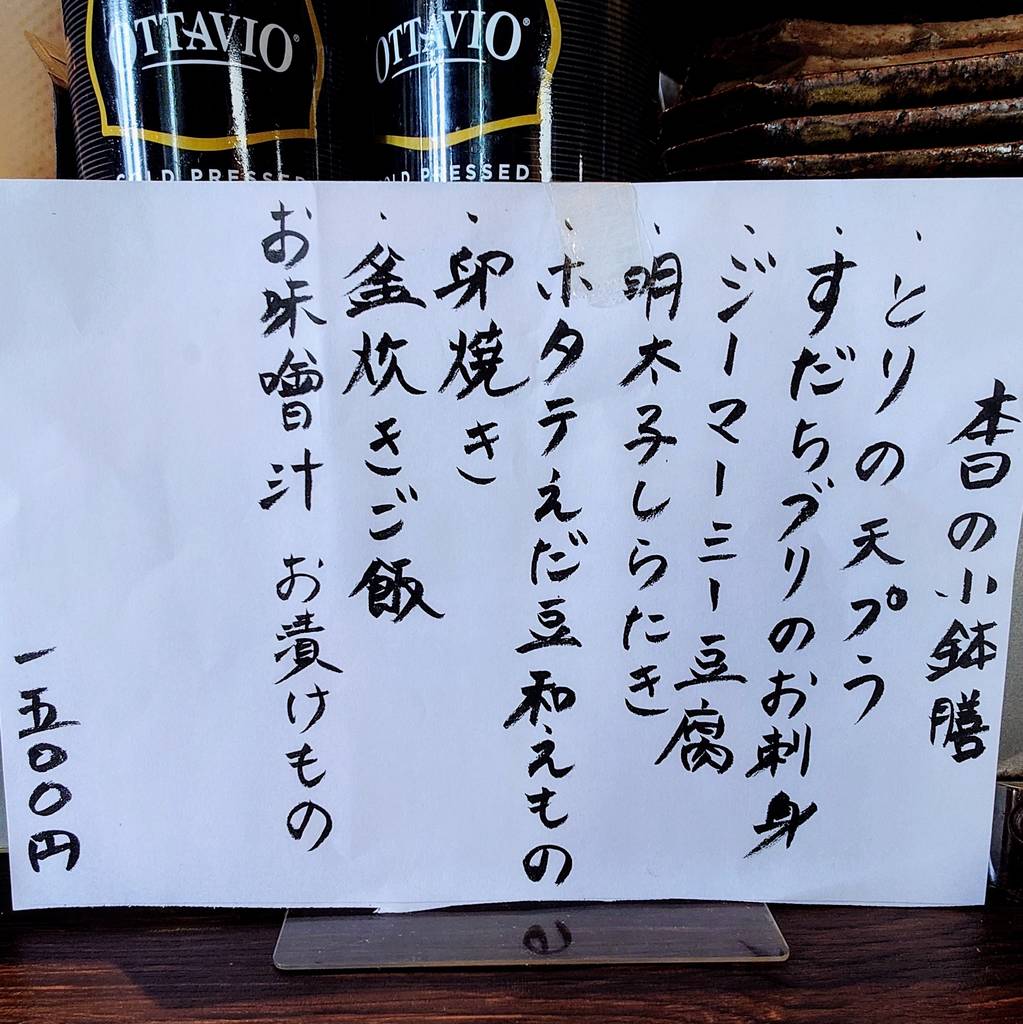 OTTAVIO
COLD PRESSED
OTTAVIO
OLD PRESSED
本日の小鉢膳
・とりの天プラ
・すだちブリのお刺身
・ジーマーミー豆腐
・明太子しらたき
・ホタテえだ豆和えもの
・卵焼き
・釜炊きご飯
お味噌汁 お漬けもの
一五〇〇円